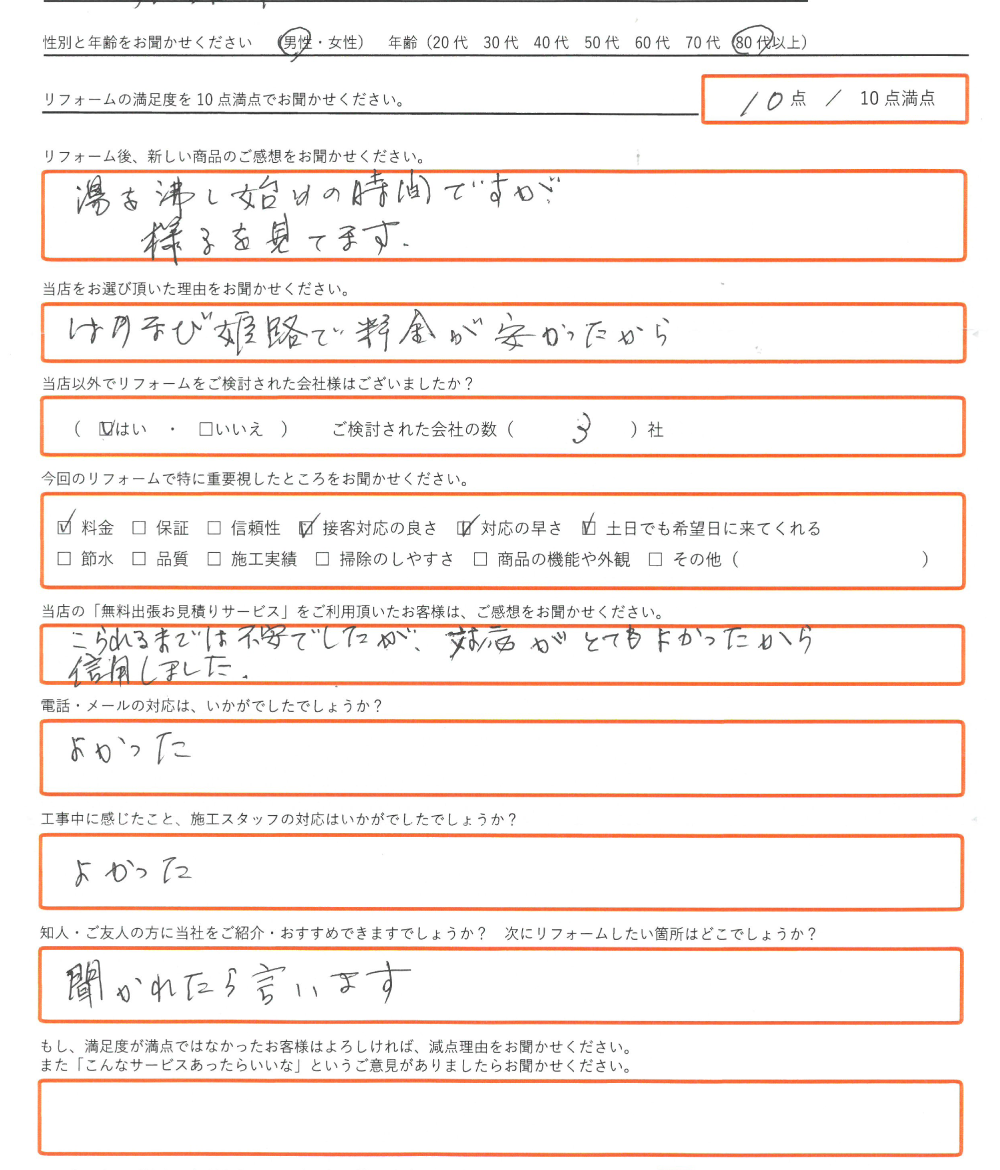 性別と年齢をお聞かせください (男性・女性) 年齢(20代 30代 40代 50代 60代 70代 80代以上)
リフォームの満足度を10点満点でお聞かせください。 10点 / 10点満点
リフォーム後、新しい商品のご感想をお聞かせください。
湯を沸し始めの時間ですが、
様子を見てます.
当店をお選び頂いた理由をお聞かせください。
はりまなび姫路で料金が安かったから
当店以外でリフォームをご検討された会社様はございましたか?
( ☑はい ・ □いいえ ) ご検討された会社の数( 3 )社
今回のリフォームで特に重要視したところをお聞かせください。
☑ 料金 □ 保証 □ 信頼性 ☑ 接客対応の良さ ☑ 対応の早さ ☑ 土日でも希望日に来てくれる
□ 節水 □ 品質 □ 施工実績 □ 掃除のしやすさ □ 商品の機能や外観 □ その他( )
当店の「無料出張お見積りサービス」をご利用頂いたお客様は、ご感想をお聞かせください。
こられるまでは不安でしたが、対応がとてもよかったから
信用しました.
電話・メールの対応は、いかがでしたでしょうか?
よかった
工事中に感じたこと、施工スタッフの対応はいかがでしたでしょうか?
よかった
知人・ご友人の方に当社をご紹介・おすすめできますでしょうか? 次にリフォームしたい箇所はどこでしょうか?
聞かれたら言います
もし、満足度が満点ではなかったお客様はよろしければ、減点理由をお聞かせください。
また「こんなサービスあったらいいな」というご意見がありましたらお聞かせください。